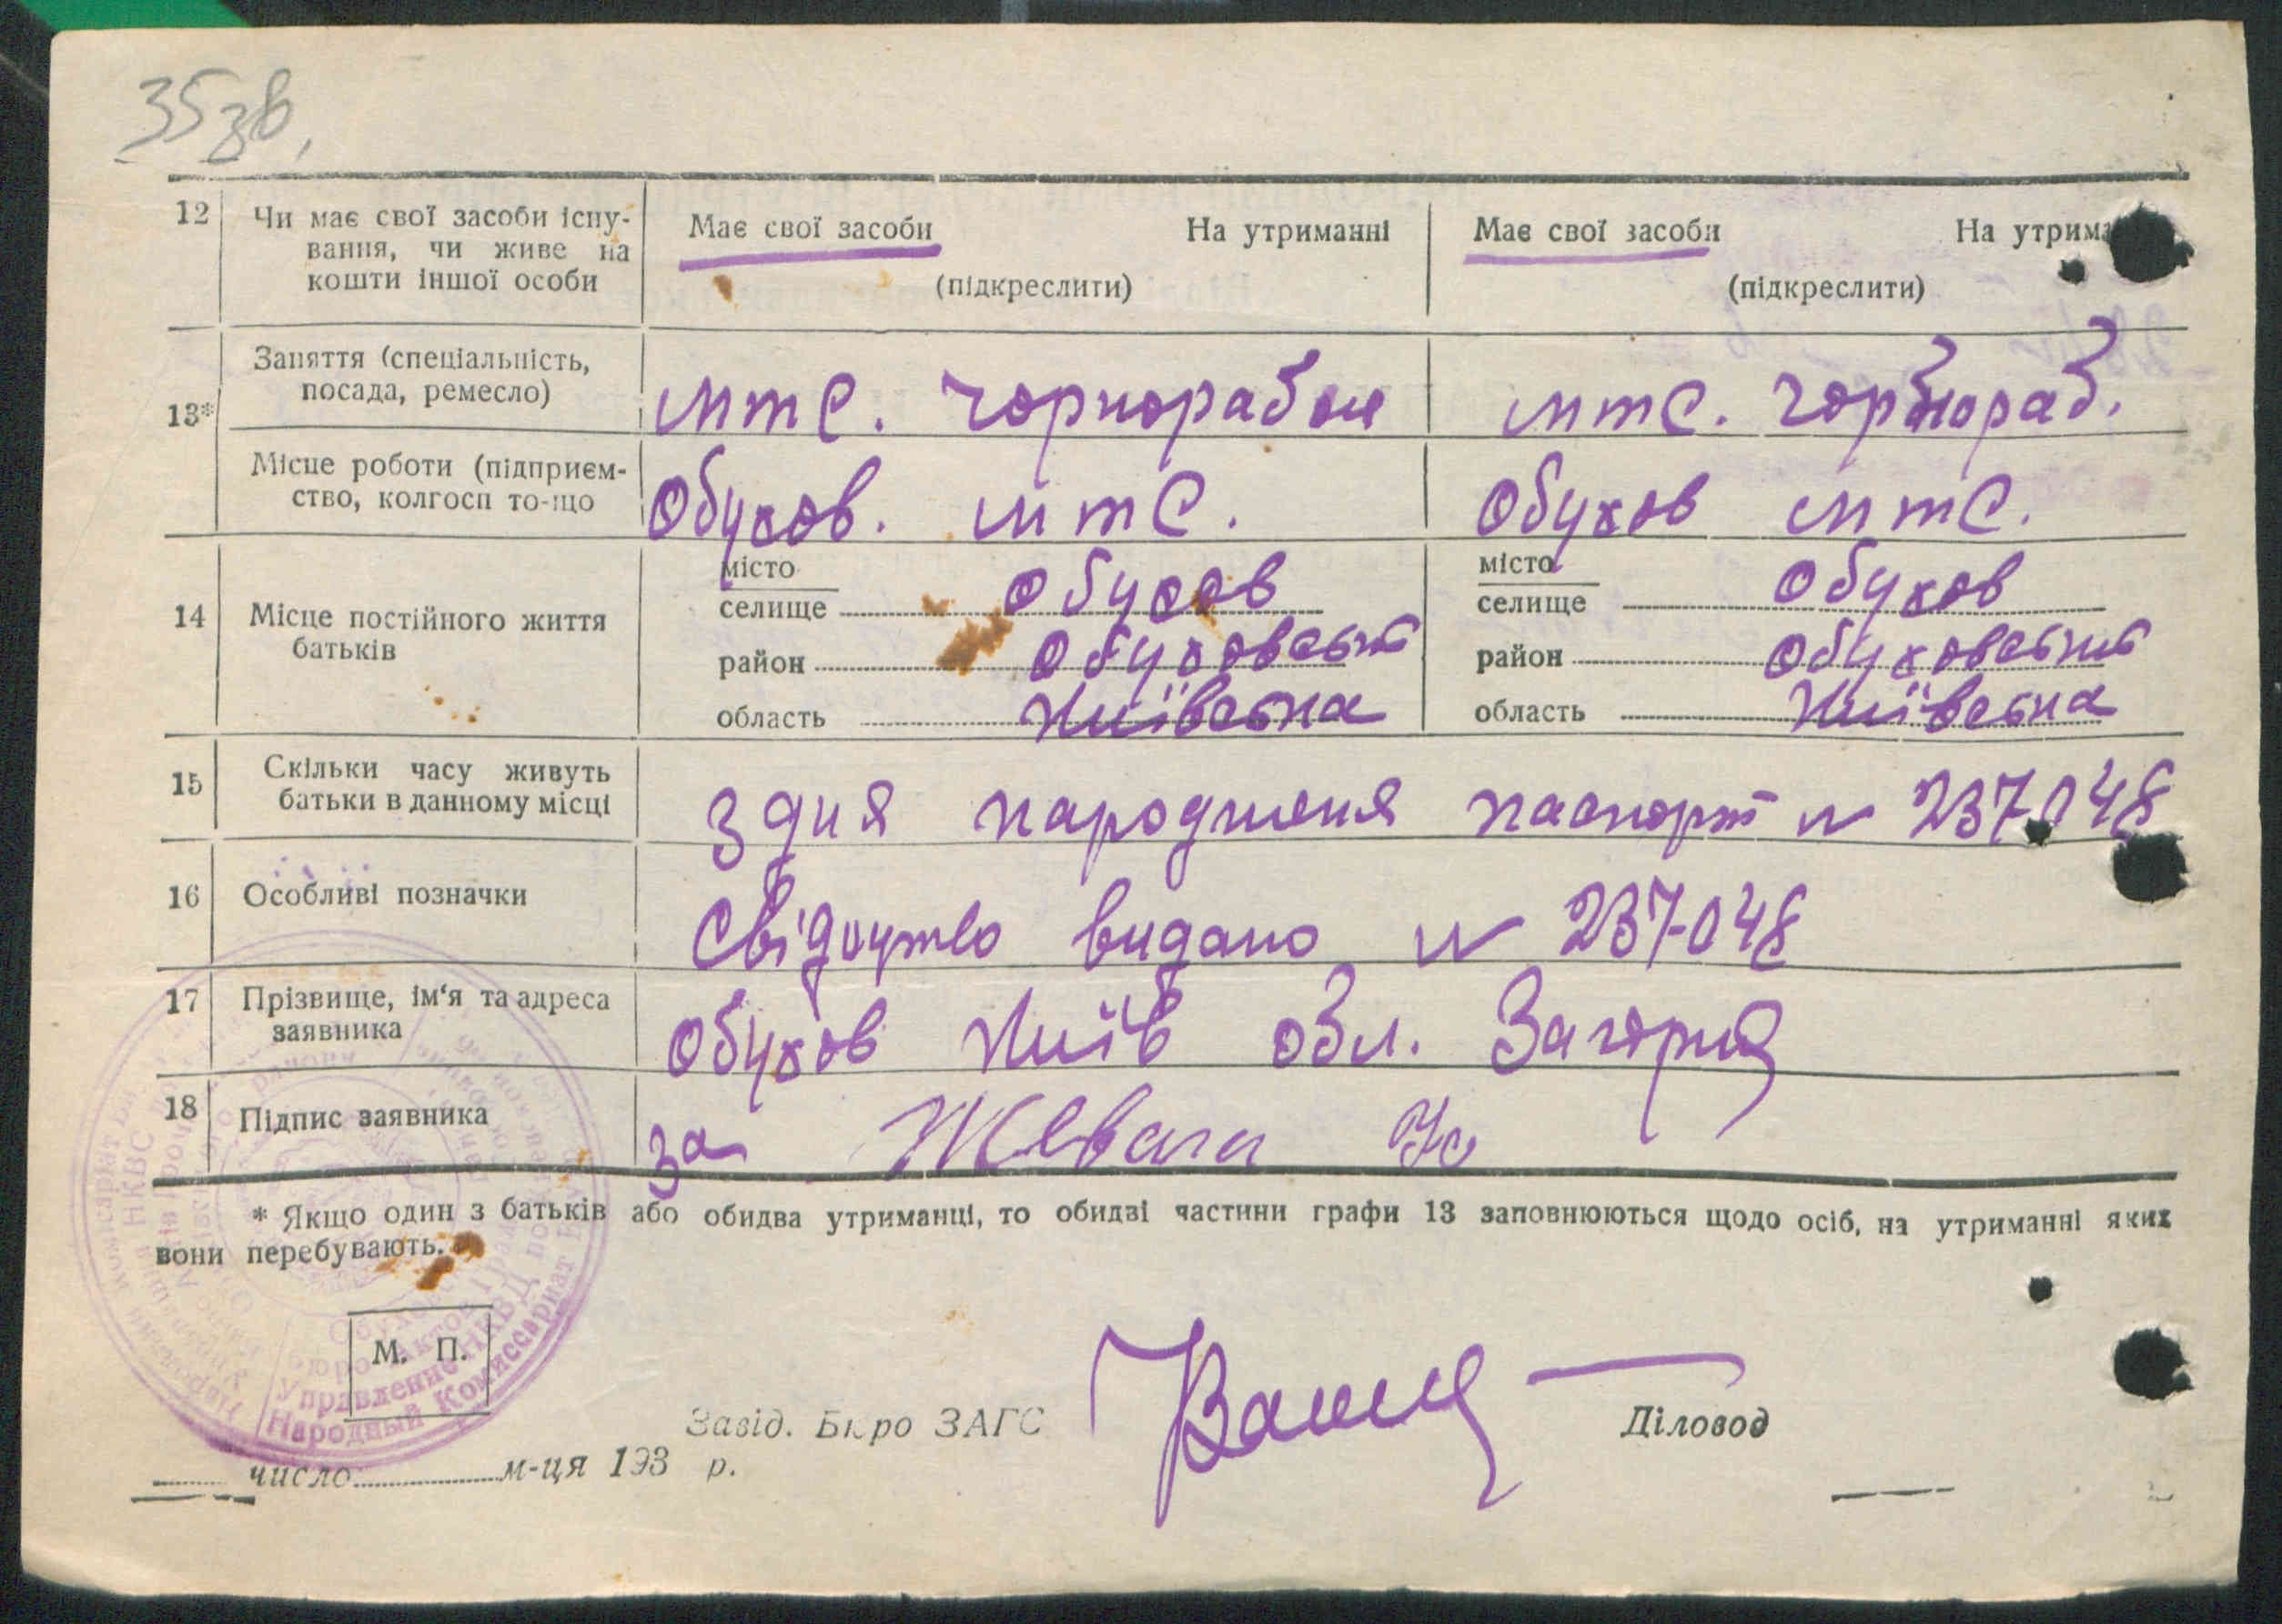 35зв,
12 Чи має свої засоби існу-
вання, чи живе на
кошти іншої особи
Має свої засоби На утриманні
(підкреслити)
Має свої засоби На утрима
(підкреслити)
13* Заняття (спеціальність,
посада, ремесло)
мтс. чорнорабоч
мтс. чорнораб.
Місце роботи (підприєм-
ство, колгосп то-що
Обухов. мтс.
Обухов мтс.
14 Місце постійного життя
батьків
місто
селище Обухов
район Обуховськ
область Київська
місто
селище Обухов
район Обуховськ
область Київська
15 Скільки часу живуть
батьки в данному місці
з дня народженя паспорт № 237048
16 Особливі позначки
Свідоцтво видано № 237048
17 Прізвище, ім‘я та адреса
заявника
Обухов Київ обл.
18 Підпис заявника
за Жевага
* Якщо один з батьків або обидва утриманці, то обидві частини графи 13 заповнюються щодо осіб, на утриманні яких
вони перебувають.
М. П.
Управление НКВД
Народный Комиссариат
Завід. Бюро ЗАГС
Діловод
число м-ця 193 р.